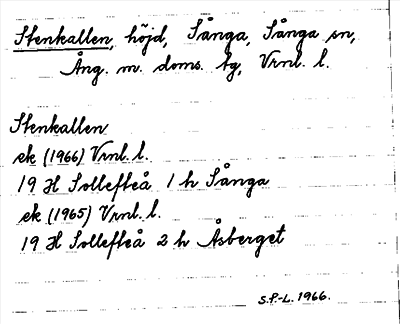 Stenkallen, höjd, Sånga, Sånga sn,
Ång. m. doms. tg, Vrnl. l.
Stenkallen
ek (1966) Vrnl. l.
19 H Sollefteå 1 h Sånga
ek (1965) Vrnl. l.
19 H Sollefteå 2 h Åsberget
S.P.-L. 1966.